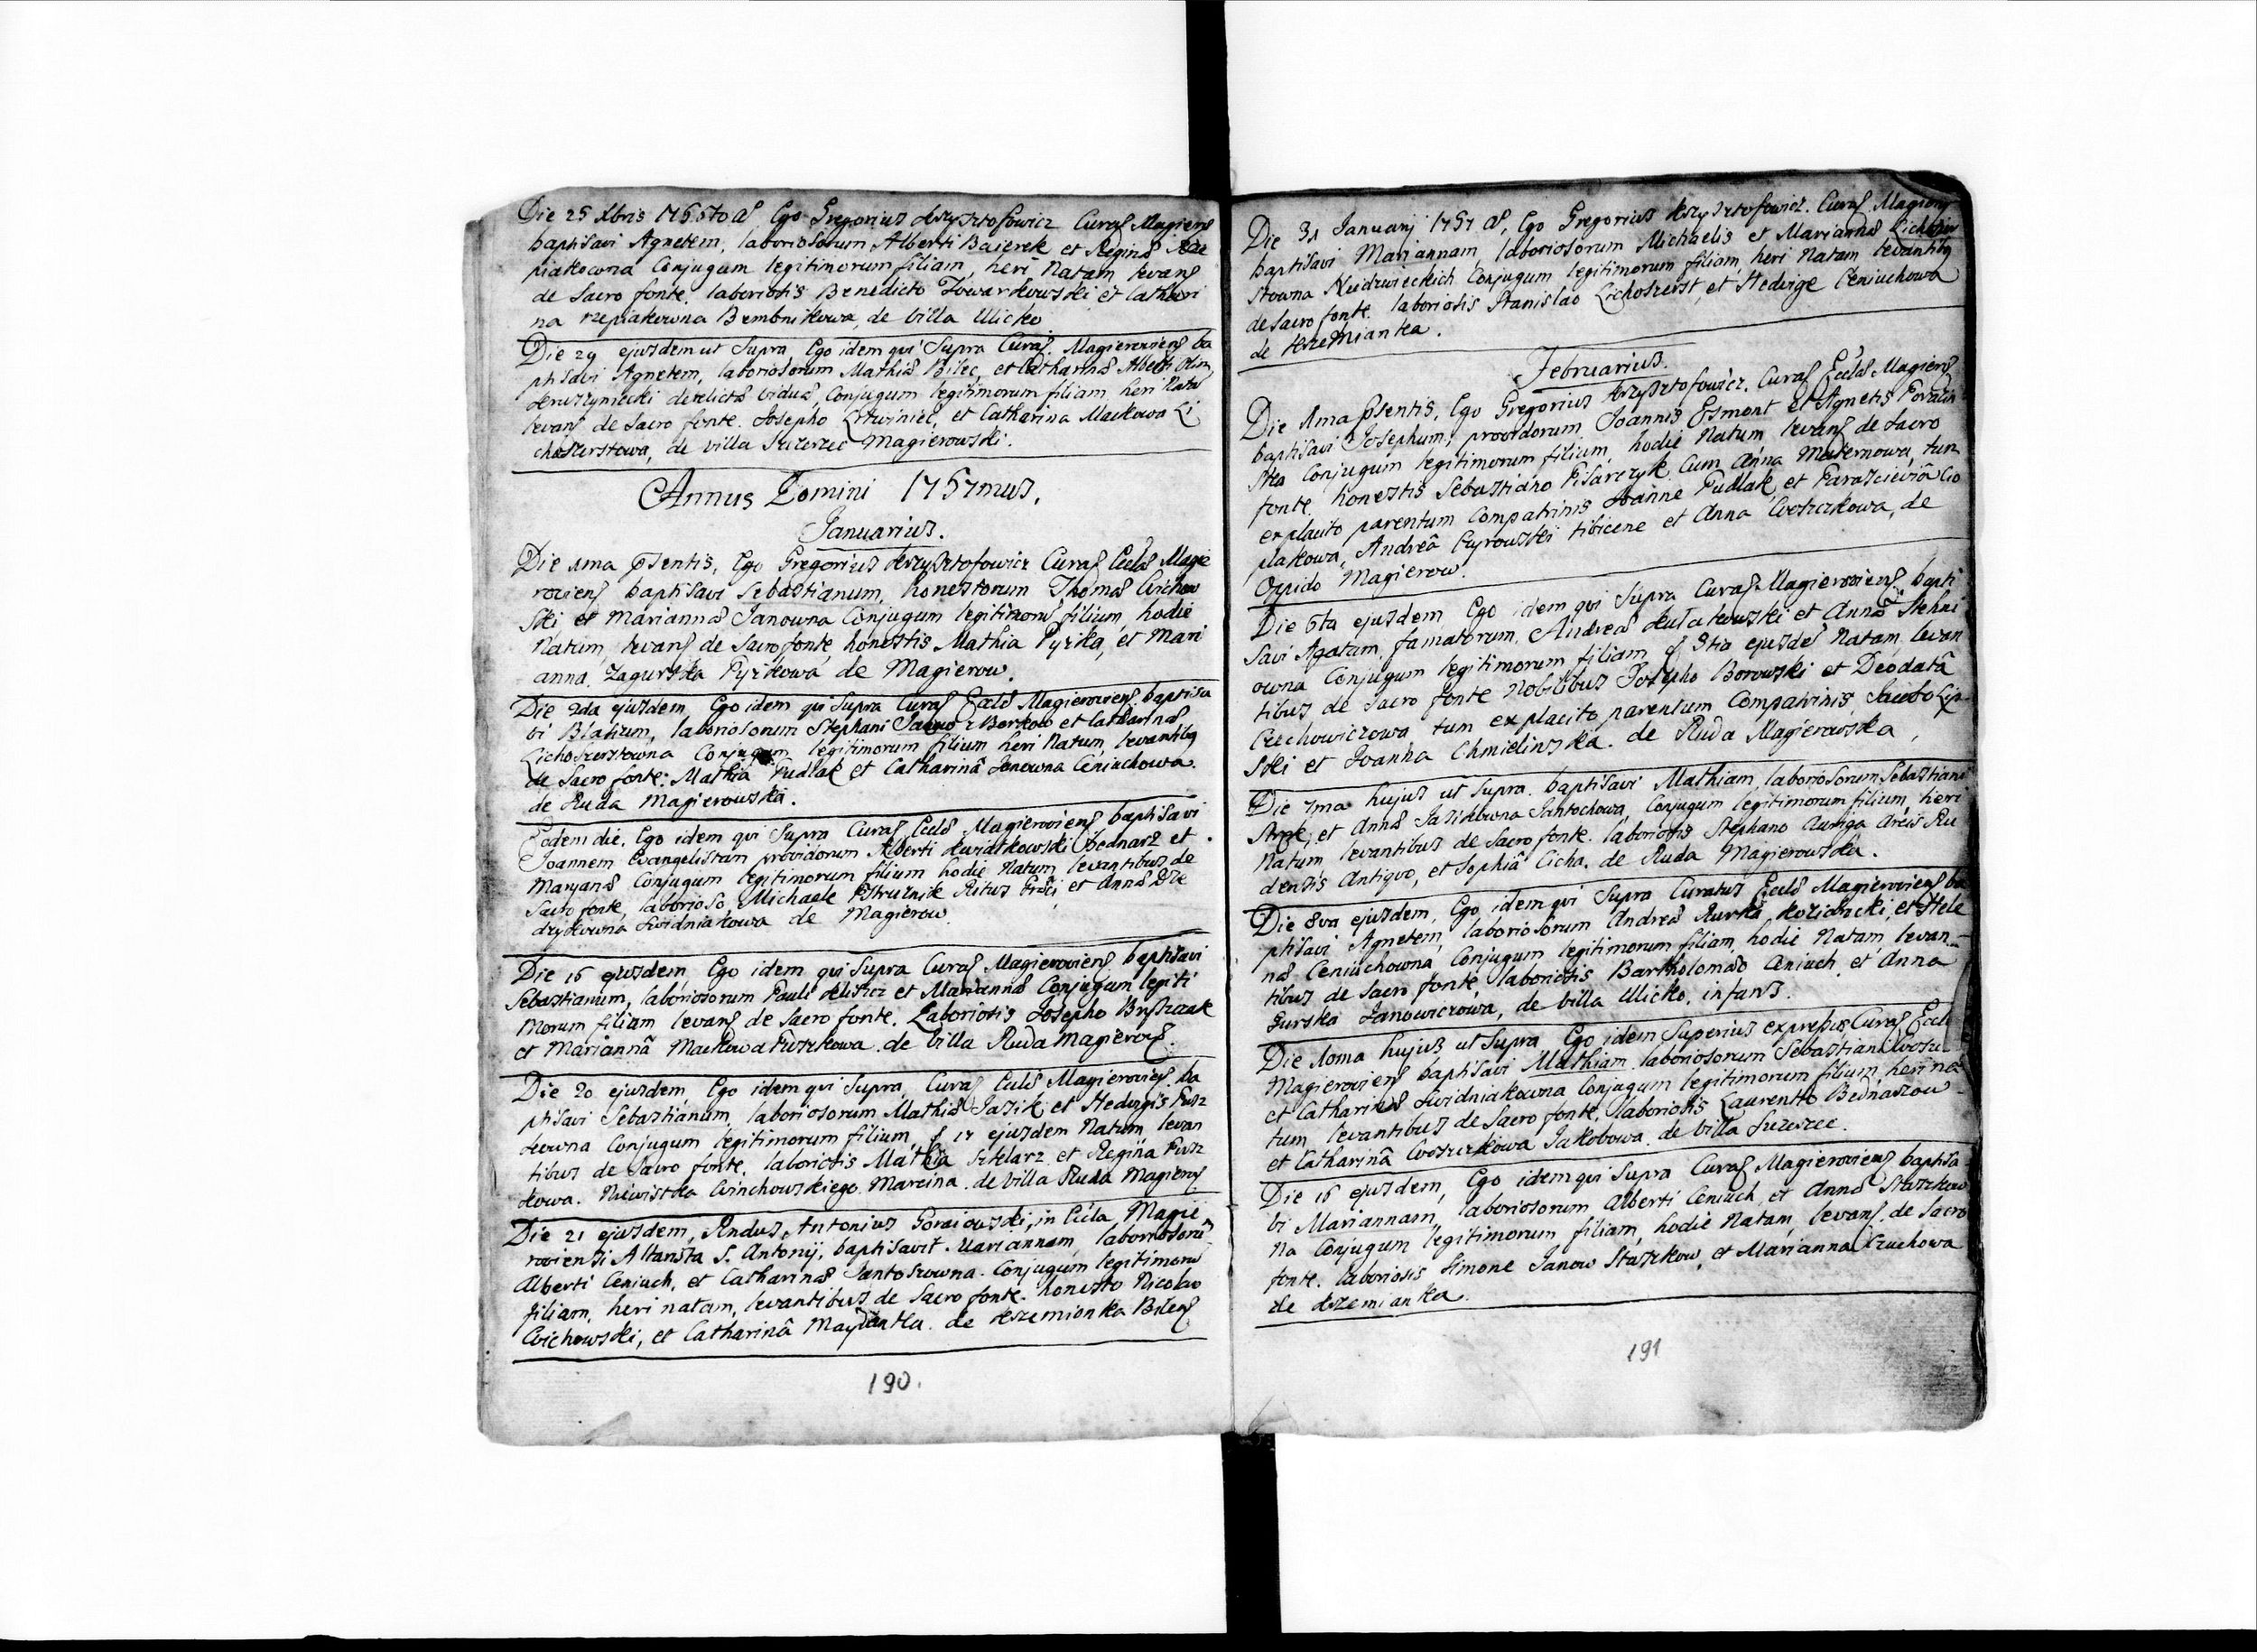 Die 25 Xbris 1756to aō Ego Gregorius Krzysztofowicz Curaƒ Magierƒ
baptisavi Agnetem, laboriosorum Alberti Baierek et Reginæ Rze
piakowna Conjugum legitimorum filiam, heri Natam levanƒ
de Sacro fonte. laboriosis Benedicto Towarkowski et Cathari
na rzepiakowna Bembnikowa, de villa Ulicko
Die 29 ejusdem ut Supra, Ego idem qui Supra Curaƒ. Magierovienƒ ba
ptisavi Agnetem, laboriosorum Mathiæ Bilec, et Catharinæ Alberti Olim
Kruszyniecki derelictæ viduæ, Conjugum legitimorum filiam heri Natā
levanƒ de Sacro fonte. Josepho Litwiniec, et Catharina Mackowa Li
choszerstowa, de villa Szczerzec Magierowski.
Annus Domini 1757mus.
Januarius.
Die 1ma pſentis, Ego Gregorius Krzysztofowicz Curaƒ Eccłæ Magie
rovienƒ baptisavi Sebastianum, honestorum Thomæ Cvichow
Ski et Mariannæ Janowna Conjugum legitimorū filium, hodie
Natum, levanƒ de Sacro fonte, honestis Mathia Pyzika, et Mari
anna Zagurska Pyzikowa de Magierow.
Die 2da ejusdem, Ego idem qui Supra Curaƒ Eccłæ Magierovienƒ baptisa
vi Blasium, laboriosorum Stephani Borkow et Catharinæ
Lichoszerstowna Conjugum legitimorum filium heri Natum, levantibg
de Sacro fonte: Mathia Pudlak et Catharinâ Janowna Ceniuchowa.
de Ruda Magierowska.
Eodem die, Ego idem qui Supra Curaƒ Eccłæ Magierovienƒ baptisavi
Joannem Evangelistam providorum Alberti Kwiatkowski Bednarz et
Maryanæ Conjugum legitimorum filium hodie Natum levantibus de
Sacro fonte, laborioso Michaele Ritus Græci, et Annâ
drykowna Swidniakowa de Magierow.
Die 16 ejusdem, Ego idem qui Supra Curaƒ Magierovienƒ baptisavi
Sebastianum, laboriosorum Pauli et Mariannæ Conjugum legiti
morum filium levanƒ de Sacro fonte. Laboriosis Josepho
et Mariannâ Mackowa Fuszkowa. de villa Ruda Magierovƒ.
Die 20 ejusdem, Ego idem qui Supra, Curaƒ Eccłæ Magierovienƒ. ba
ptisavi Sebastianum, laboriosorum Mathiæ Jazik et Hedvigis Fusz
kowna Conjugum legitimorum filium, ƒ 17 ejusdem Natum levan
tibus de Sacro fonte. laboriosis Mathia Szklarz et Regina Fusz
kowa. Niewistka Cvinchowskiego Marcina. de villa Ruda Magierƒ
Die 21 ejusdem, Rndus Antonius Goraiowski, in Eccła Magie
roviensi Altarista S. Antonij, baptisavit Mariannam, laboriosorū
Alberti Ceniuch, et Catharinæ Jantoszowna. Conjugum legitimorū
filiam, heri natam, levantibus de Sacro fonte. honesto Nicolao
Cvichowski, et Catharinâ de Krzemionka
190.
Die 31 Januarij 1757 aō, Ego Gregorius Krzysztofowicz. Curaƒ. Magierƒ
baptisavi Mariannam, laboriosorum Michaelis et Mariannæ Lichoszer
stowna Niedzwieckich Conjugum legitimorum filiam, heri Natam levantibg
de Sacro fonte. laboriosis Stanislao Lichoszerst, et Hedvige Ceniuchowa
de Krzemianka.
Februarius.
Die 1ma pſentis, Ego Gregorius Krzysztofowicz. Curaƒ Eccłæ Magierƒ
baptisavi Josephum, providorum Joannis Esmont et Agnetis
Ska Conjugum legitimorum filium, hodie Natum levanƒ de Sacro
fonte. honestis Sebastiano Pisarczyk Cum Anna Maternowa, tum
ex placito parentum Compatrinis Joanne Pudlak et Parascieviâ Cio
plakowa, Andreâ Cyrowski tibicene et Anna Cvoszczkowa, de
Oppido Magierow.
Die 6ta ejusdem, Ego idem qui Supra Curaƒ. Magierovienƒ bapti
savi Agatam, famatorum, Andreæ Kułakowski et Annæ Stehni
owna Conjugum legitimorum filiam ƒ 3tia ejusdē Natam, levan
tibus de Sacro fonte Nobilibus Josepho Borowski et Deodatâ
Czechowiczowa tum ex placito parentum Compatrinis, Jacobo Lip
Ski et Joanna Chmielinska. de Ruda Magierowska,
Die 7ma hujus ut Supra. baptisavi Mathiam, laboriosorum Sebastiani
et Annæ Jazikowna Jantochowa, Conjugum legitimorum filium, heri
Natum levantibus de Sacro fonte. laboriosis Stephano Auriga Arcis Ru
densis Antiquo, et Sophiâ Cicha. de Ruda Magierowska.
Die 8va ejusdem, Ego idem qui Supra Curatus Eccłæ Magierovienƒ ba
ptisavi Agnetem, laboriosorum Andreæ Kurka Kozidracki, et Hele
næ Ceniuchowna Conjugum legitimorum filiam, hodie Natam, levan
tibus de Sacro fonte, laboriosis Bartholomæo Ceniuch, et Anna
Gurska Janowiczowa, de villa Ulicko. infans.
Die 10ma hujus ut Supra Ego idem Superius expressus Curaƒ, Eccłæ
Magierovienƒ baptisavi Mathiam laboriosorum Sebastiani
et Catharinæ Swidniakowna Conjugum legitimorum filium, heri na
tum, levantibus de Sacro fonte laboriosis Laurentio Bednaszow
et Catharinâ Cvoszczkowa Jakobowa. de villa Szczerzec.
Die 16 ejusdem, Ego idem qui Supra Curaƒ Magierovienƒ baptisa
vi Mariannam, laboriosorum Alberti Ceniuch, et Annæ Staszkow
na Conjugum legitimorum filiam, hodie Natam, levanƒ. de Sacro
fonte. laboriosis Simone Janow Staszkow, et Marianna Czuchowa
de Krzemianka.
191